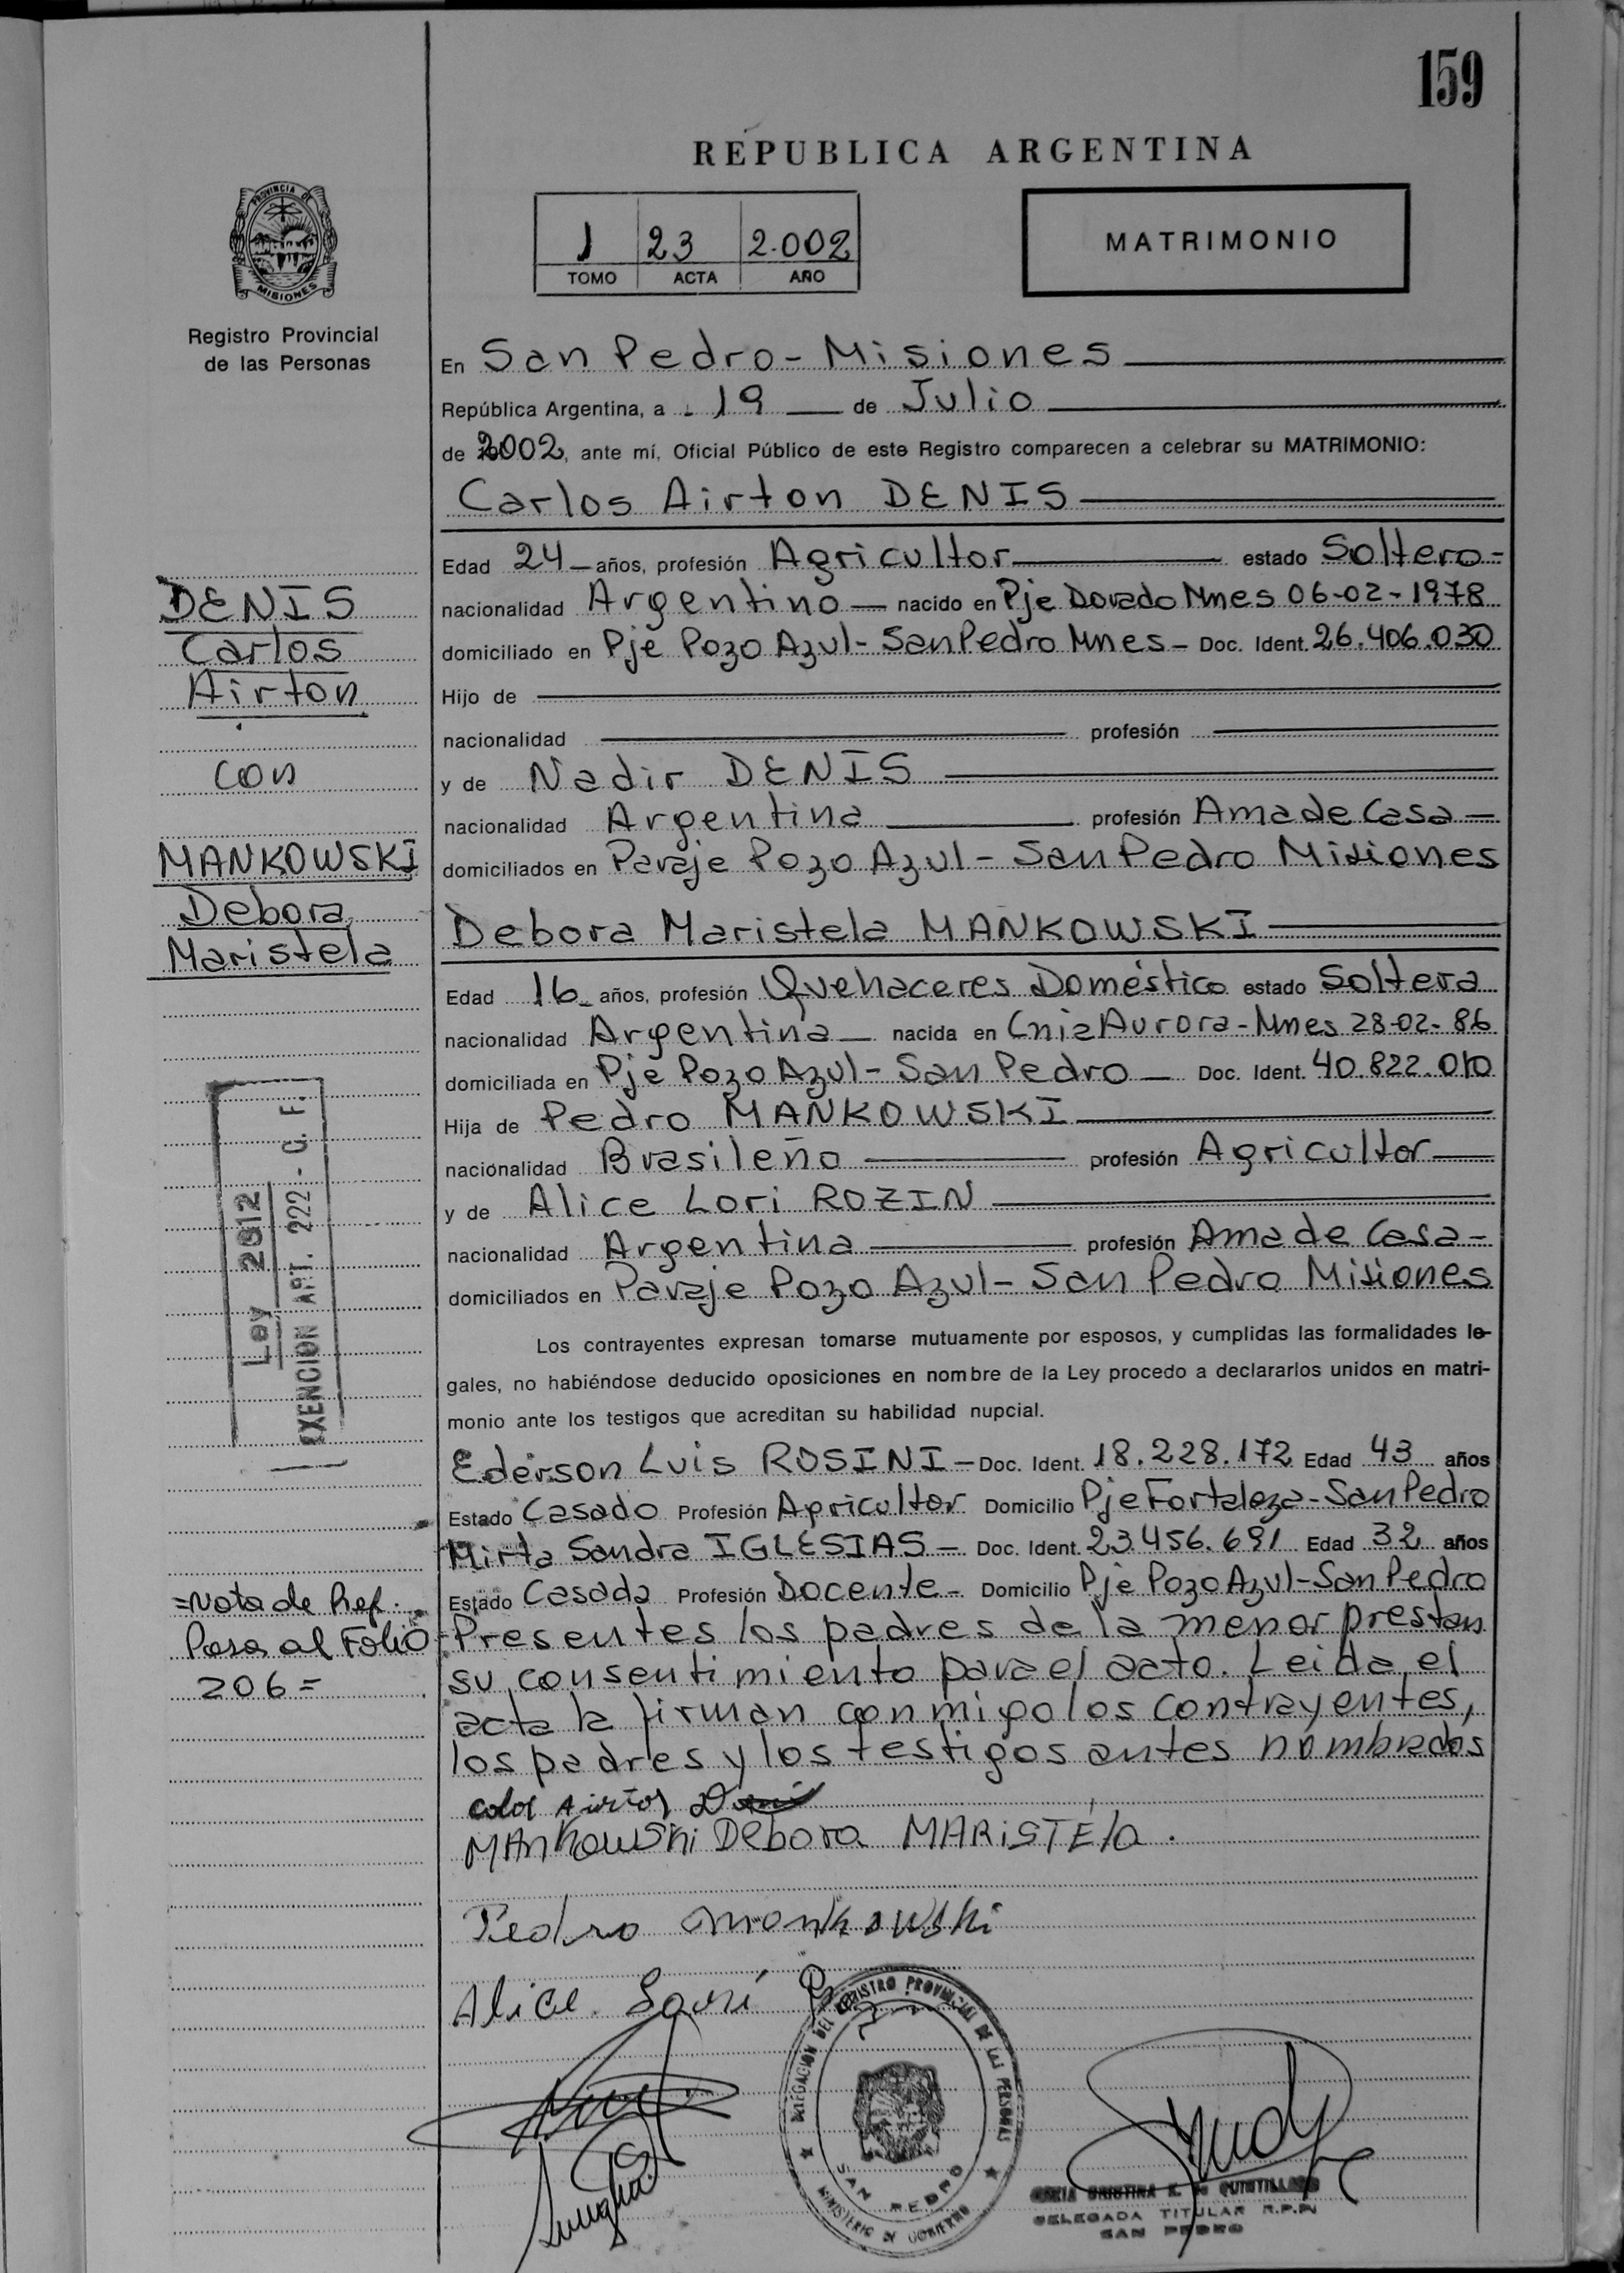 159
REPUBLICA ARGENTINA
PROVINCIA DE
MISIONES
Registro Provincial
de las Personas
1 23 2.002
TOMO ACTA AÑO
MATRIMONIO
En San Pedro - Misiones
República Argentina, a 19 de Julio
de 2002, ante mí, Oficial Público de este Registro comparecen a celebrar su MATRIMONIO:
Carlos Airton DENIS
Edad 24 años, profesión Agricultor estado Soltero
nacionalidad Argentino nacido en Pje Dorado Mnes 06-02-1978
domiciliado en Pje Pozo Azul - San Pedro Mnes - Doc. Ident. 26.406.030
Hijo de
nacionalidad profesión
y de Nadir DENIS
nacionalidad Argentina profesión Ama de Casa
domiciliados en Paraje Pozo Azul - San Pedro Misiones
Debora Maristela MANKOWSKI
Edad 16 años, profesión Quehaceres Doméstico estado Soltera
nacionalidad Argentina nacida en Cnia Aurora - Mnes 28-02-86
domiciliada en Pje Pozo Azul - San Pedro Doc. Ident. 40.822.010
Hija de Pedro MANKOWSKI
nacionalidad Brasileño profesión Agricultor
y de Alice Lori ROZIN
nacionalidad Argentina profesión Ama de Casa
domiciliados en Paraje Pozo Azul - San Pedro Misiones
Los contrayentes expresan tomarse mutuamente por esposos, y cumplidas las formalidades le-
gales, no habiéndose deducido oposiciones en nombre de la Ley procedo a declararlos unidos en matri-
monio ante los testigos que acreditan su habilidad nupcial.
Ederson Luis ROSINI - Doc. Ident. 18.228.172 Edad 43 años
Estado Casado Profesión Agricultor Domicilio Pje Fortaleza - San Pedro
Mirta Sandra IGLESIAS - Doc. Ident. 23.456.691 Edad 32 años
Estado Casada Profesión Docente - Domicilio Pje Pozo Azul - San Pedro
Presentes los padres de la menor prestan
su consentimiento para el acto. Leida el
acta la firman conmigo los contrayentes,
los padres y los testigos antes nombrados
MANKOWSKI Debora MARISTELA.
Pedro Mankowski
Alice Lori
DENIS
Carlos
Airton
con
MANKOWSKI
Debora
Maristela
Ley 2912
EXENCION ART. 222 - C. F.
=Nota de Ref.
Pasa al Folio
206=
DELEGACION DEL REGISTRO PROVINCIAL DE LAS PERSONAS
SAN PEDRO
MINISTERIO DE GOBIERNO
DELEGADA TITULAR R.P.P.
SAN PEDRO